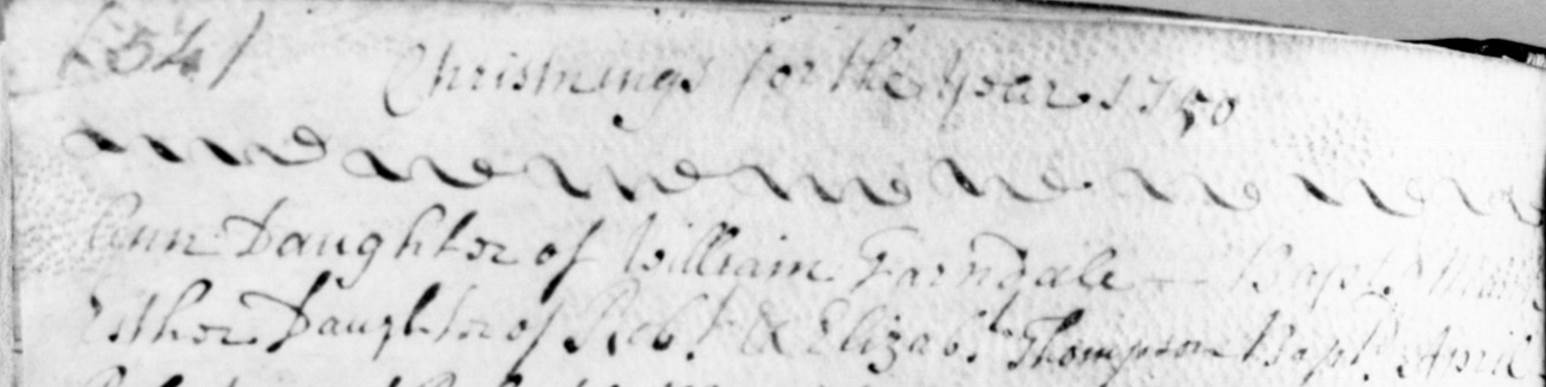 (54)
Christnings for the Year 1750
Ann Daughter of William Farndale — Bapt.d
Esther Daughter of Rob.t & Elizab.th Thompson Bapt.d April